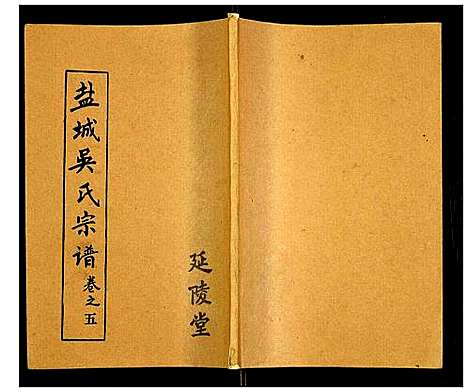 盐城吳氏宗谱卷之五
延陵堂